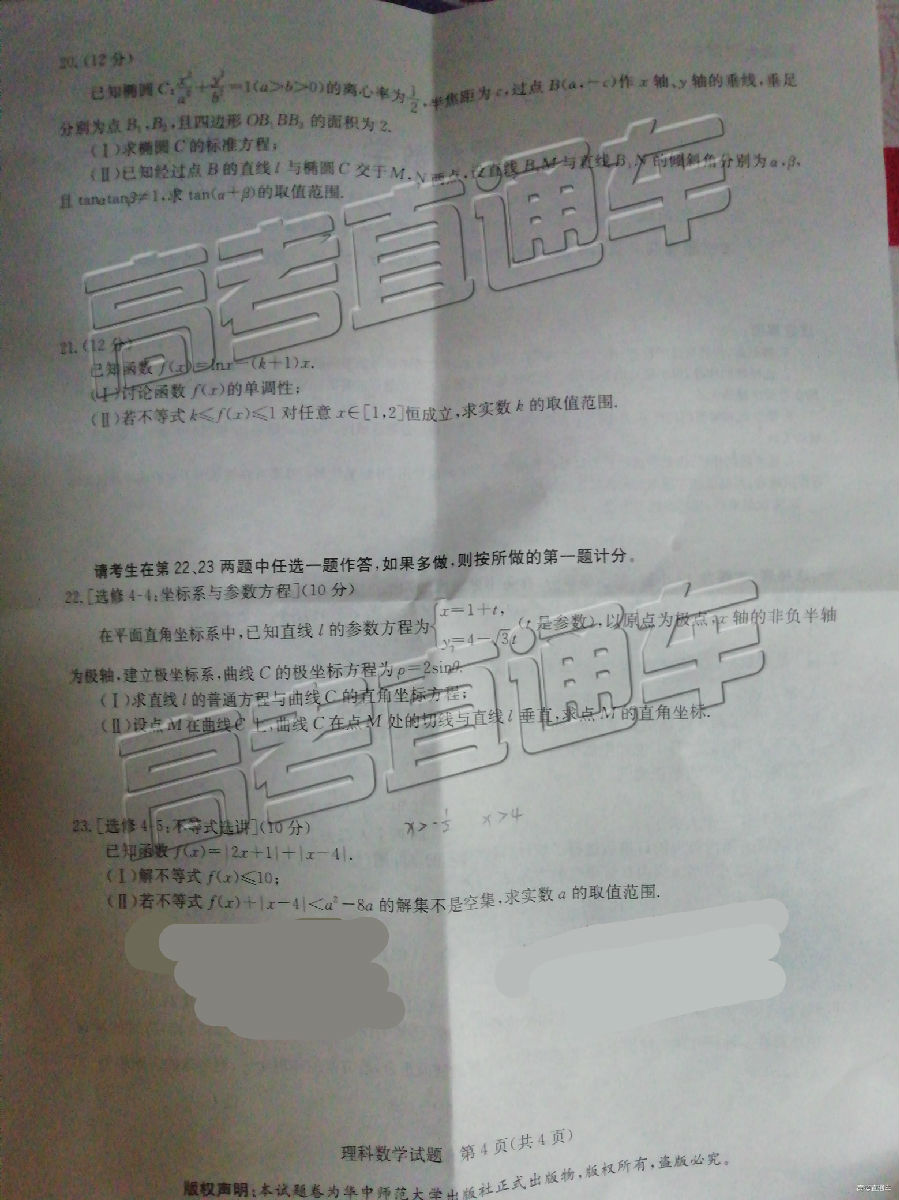 20.(12分)
已知椭圆C:x²/a²+y²/b²=1(a>b>0)的离心率为1/2,半焦距为c,过点B(a,-c)作x轴、y轴的垂线,垂足
分别为点B₁,B₂,且四边形OB₁BB₂的面积为2.
(Ⅰ)求椭圆C的标准方程;
(Ⅱ)已知经过点B的直线l与椭圆C交于M,N两点,设直线B₁M与直线B₁N的倾斜角分别为α,β,
且tanαtanβ≠1,求tan(α+β)的取值范围.
21.(12分)
已知函数f(x)=lnx-(k+1)x.
(Ⅰ)讨论函数f(x)的单调性;
(Ⅱ)若不等式k≤f(x)≤1对任意x∈[1,2]恒成立,求实数k的取值范围.
请考生在第22、23两题中任选一题作答,如果多做,则按所做的第一题计分。
22.[选修4-4:坐标系与参数方程](10分)
在平面直角坐标系中,已知直线l的参数方程为{x=1+t, y=4-√3t (t是参数),以原点为极点,x轴的非负半轴
为极轴,建立极坐标系,曲线C的极坐标方程为ρ=2sinθ.
(Ⅰ)求直线l的普通方程与曲线C的直角坐标方程;
(Ⅱ)设点M在曲线C上,曲线C在点M处的切线与直线l垂直,求点M的直角坐标.
23.[选修4-5:不等式选讲](10分)
x>-½ x>4
已知函数f(x)=|2x+1|+|x-4|.
(Ⅰ)解不等式f(x)≤10;
(Ⅱ)若不等式f(x)+|x-4|<a²-8a的解集不是空集,求实数a的取值范围.
理科数学试题 第4页(共4页)
版权声明:本试题卷为华中师范大学出版社正式出版物,版权所有,盗版必究。
高考直通车
高考直通车
高考直通车